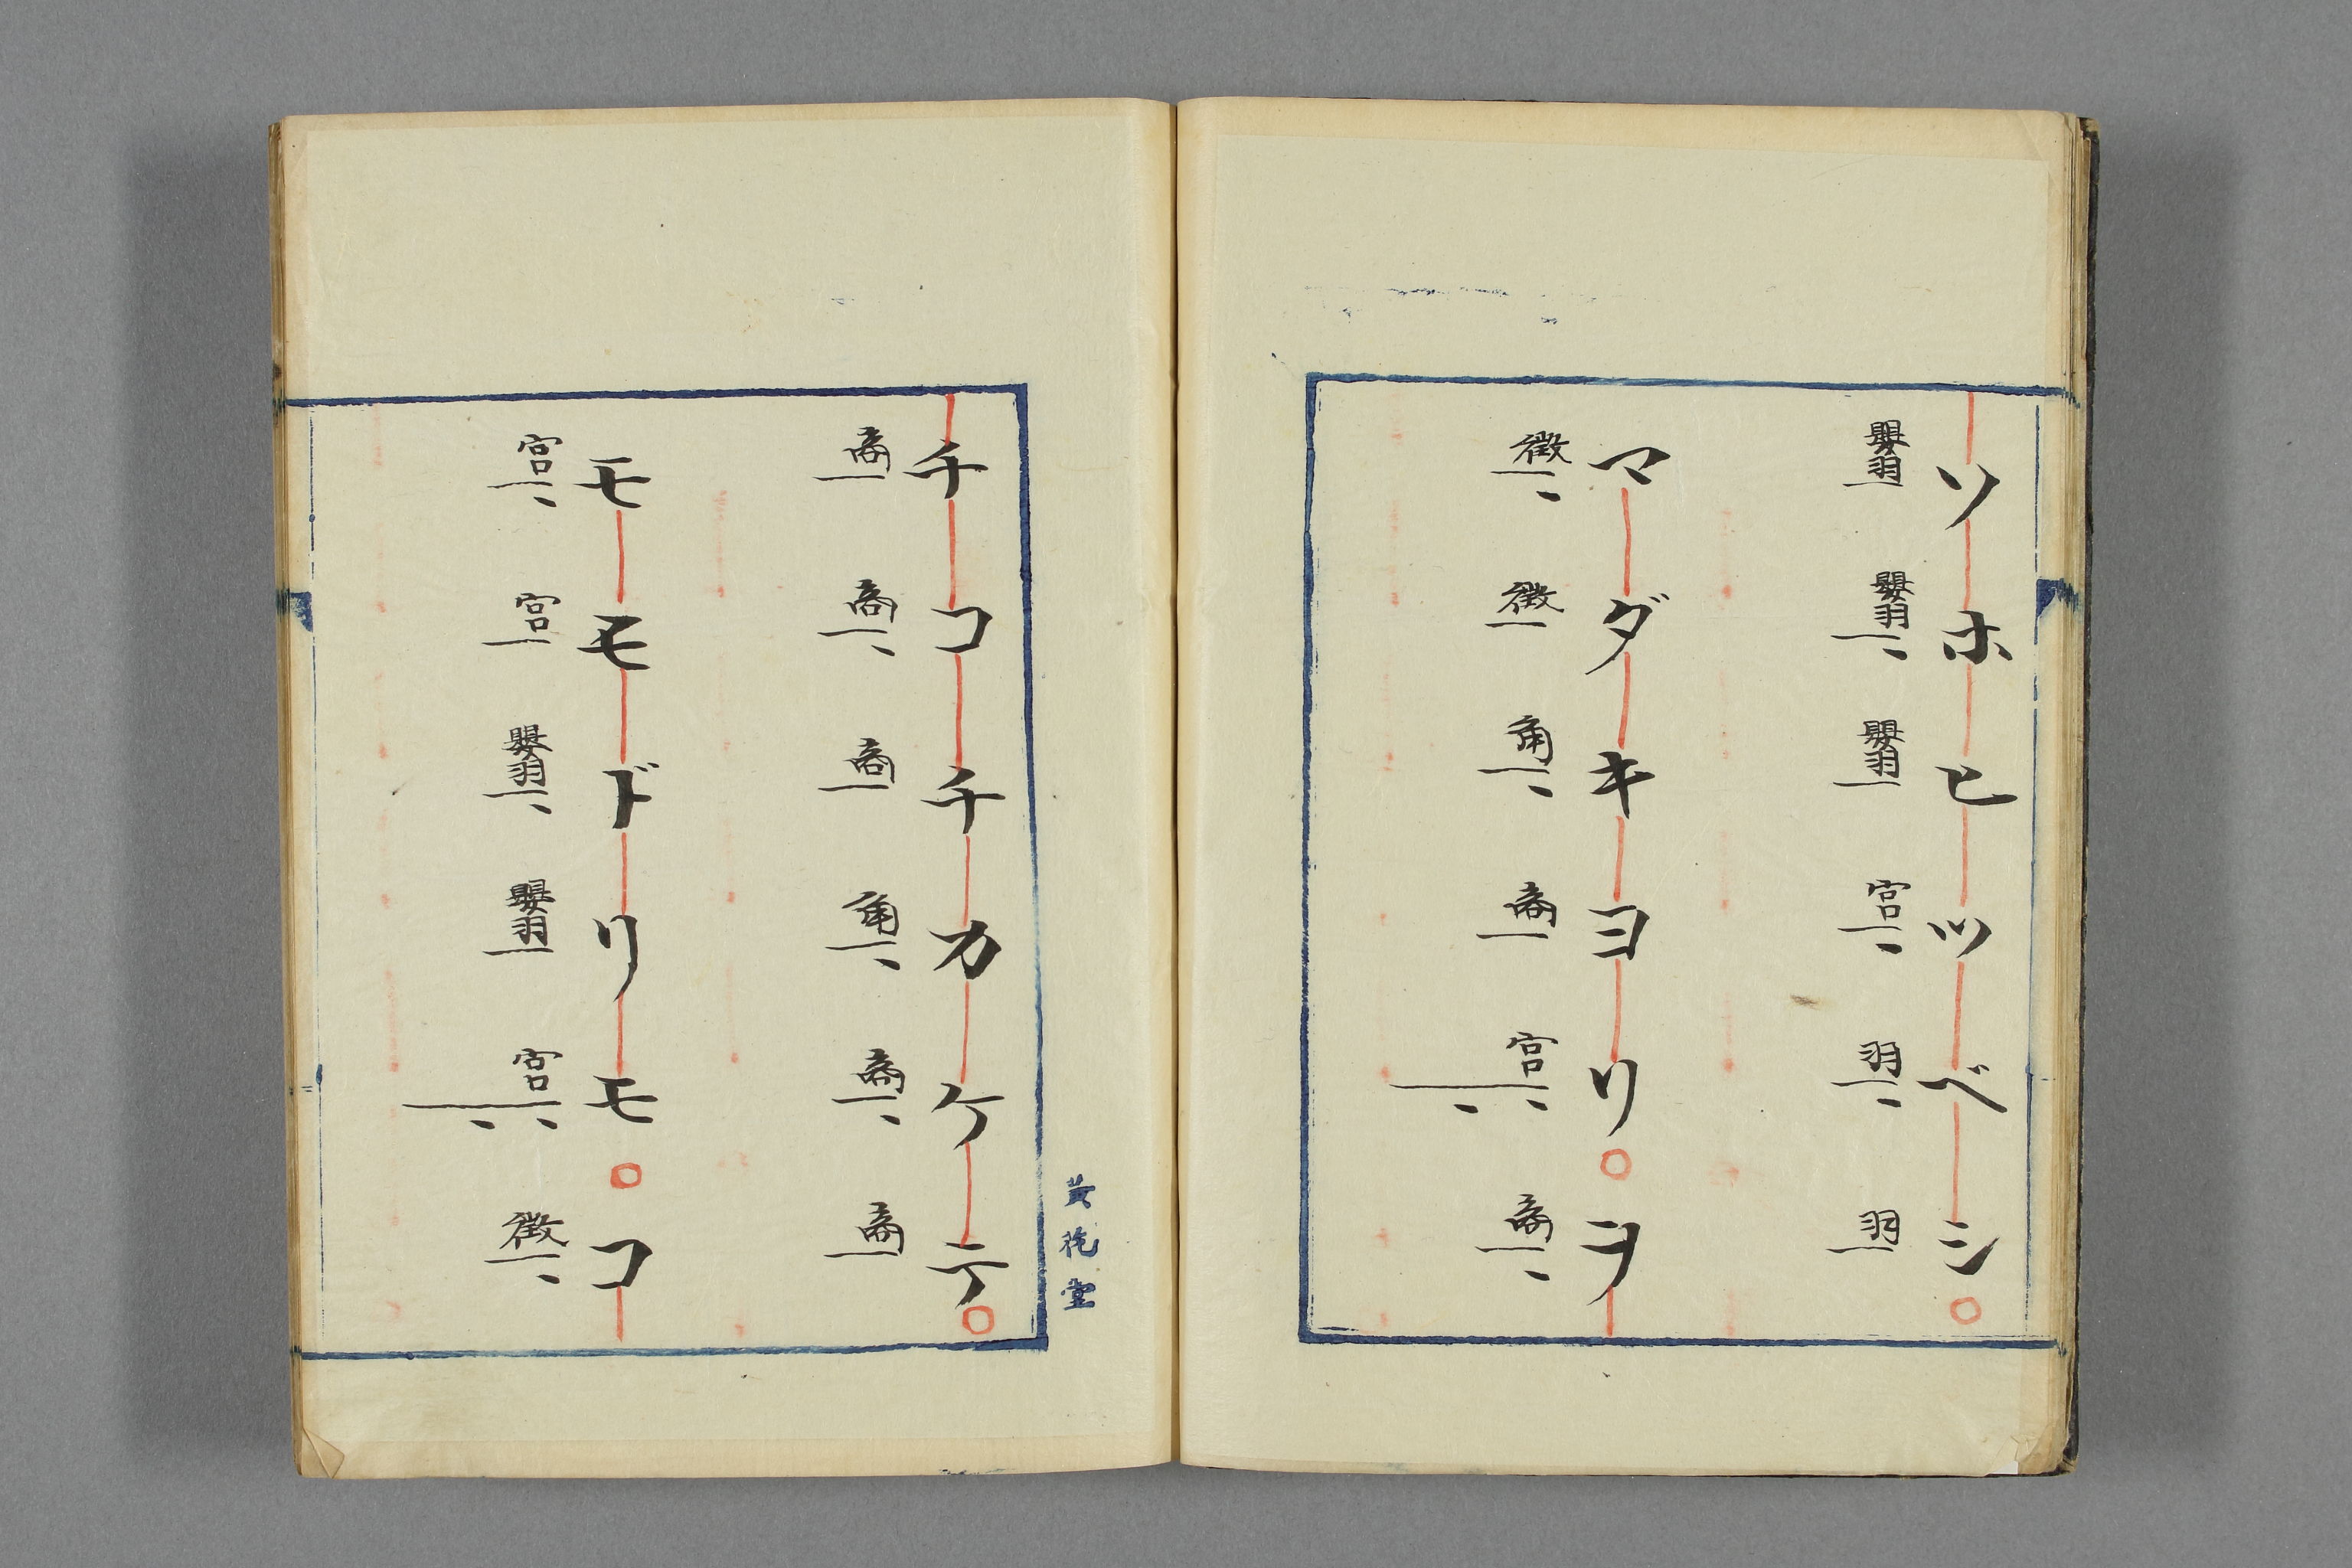 ソホヒツベシ○
嬰羽 嬰羽 嬰羽 宮 羽 羽
マダキヨリ○ヲ
徴 徴 角 商 宮 商
チコチカケテ○
商 商 商 角 商 商
モモドリモ○コ
宮 宮 嬰羽 嬰羽 宮 徴